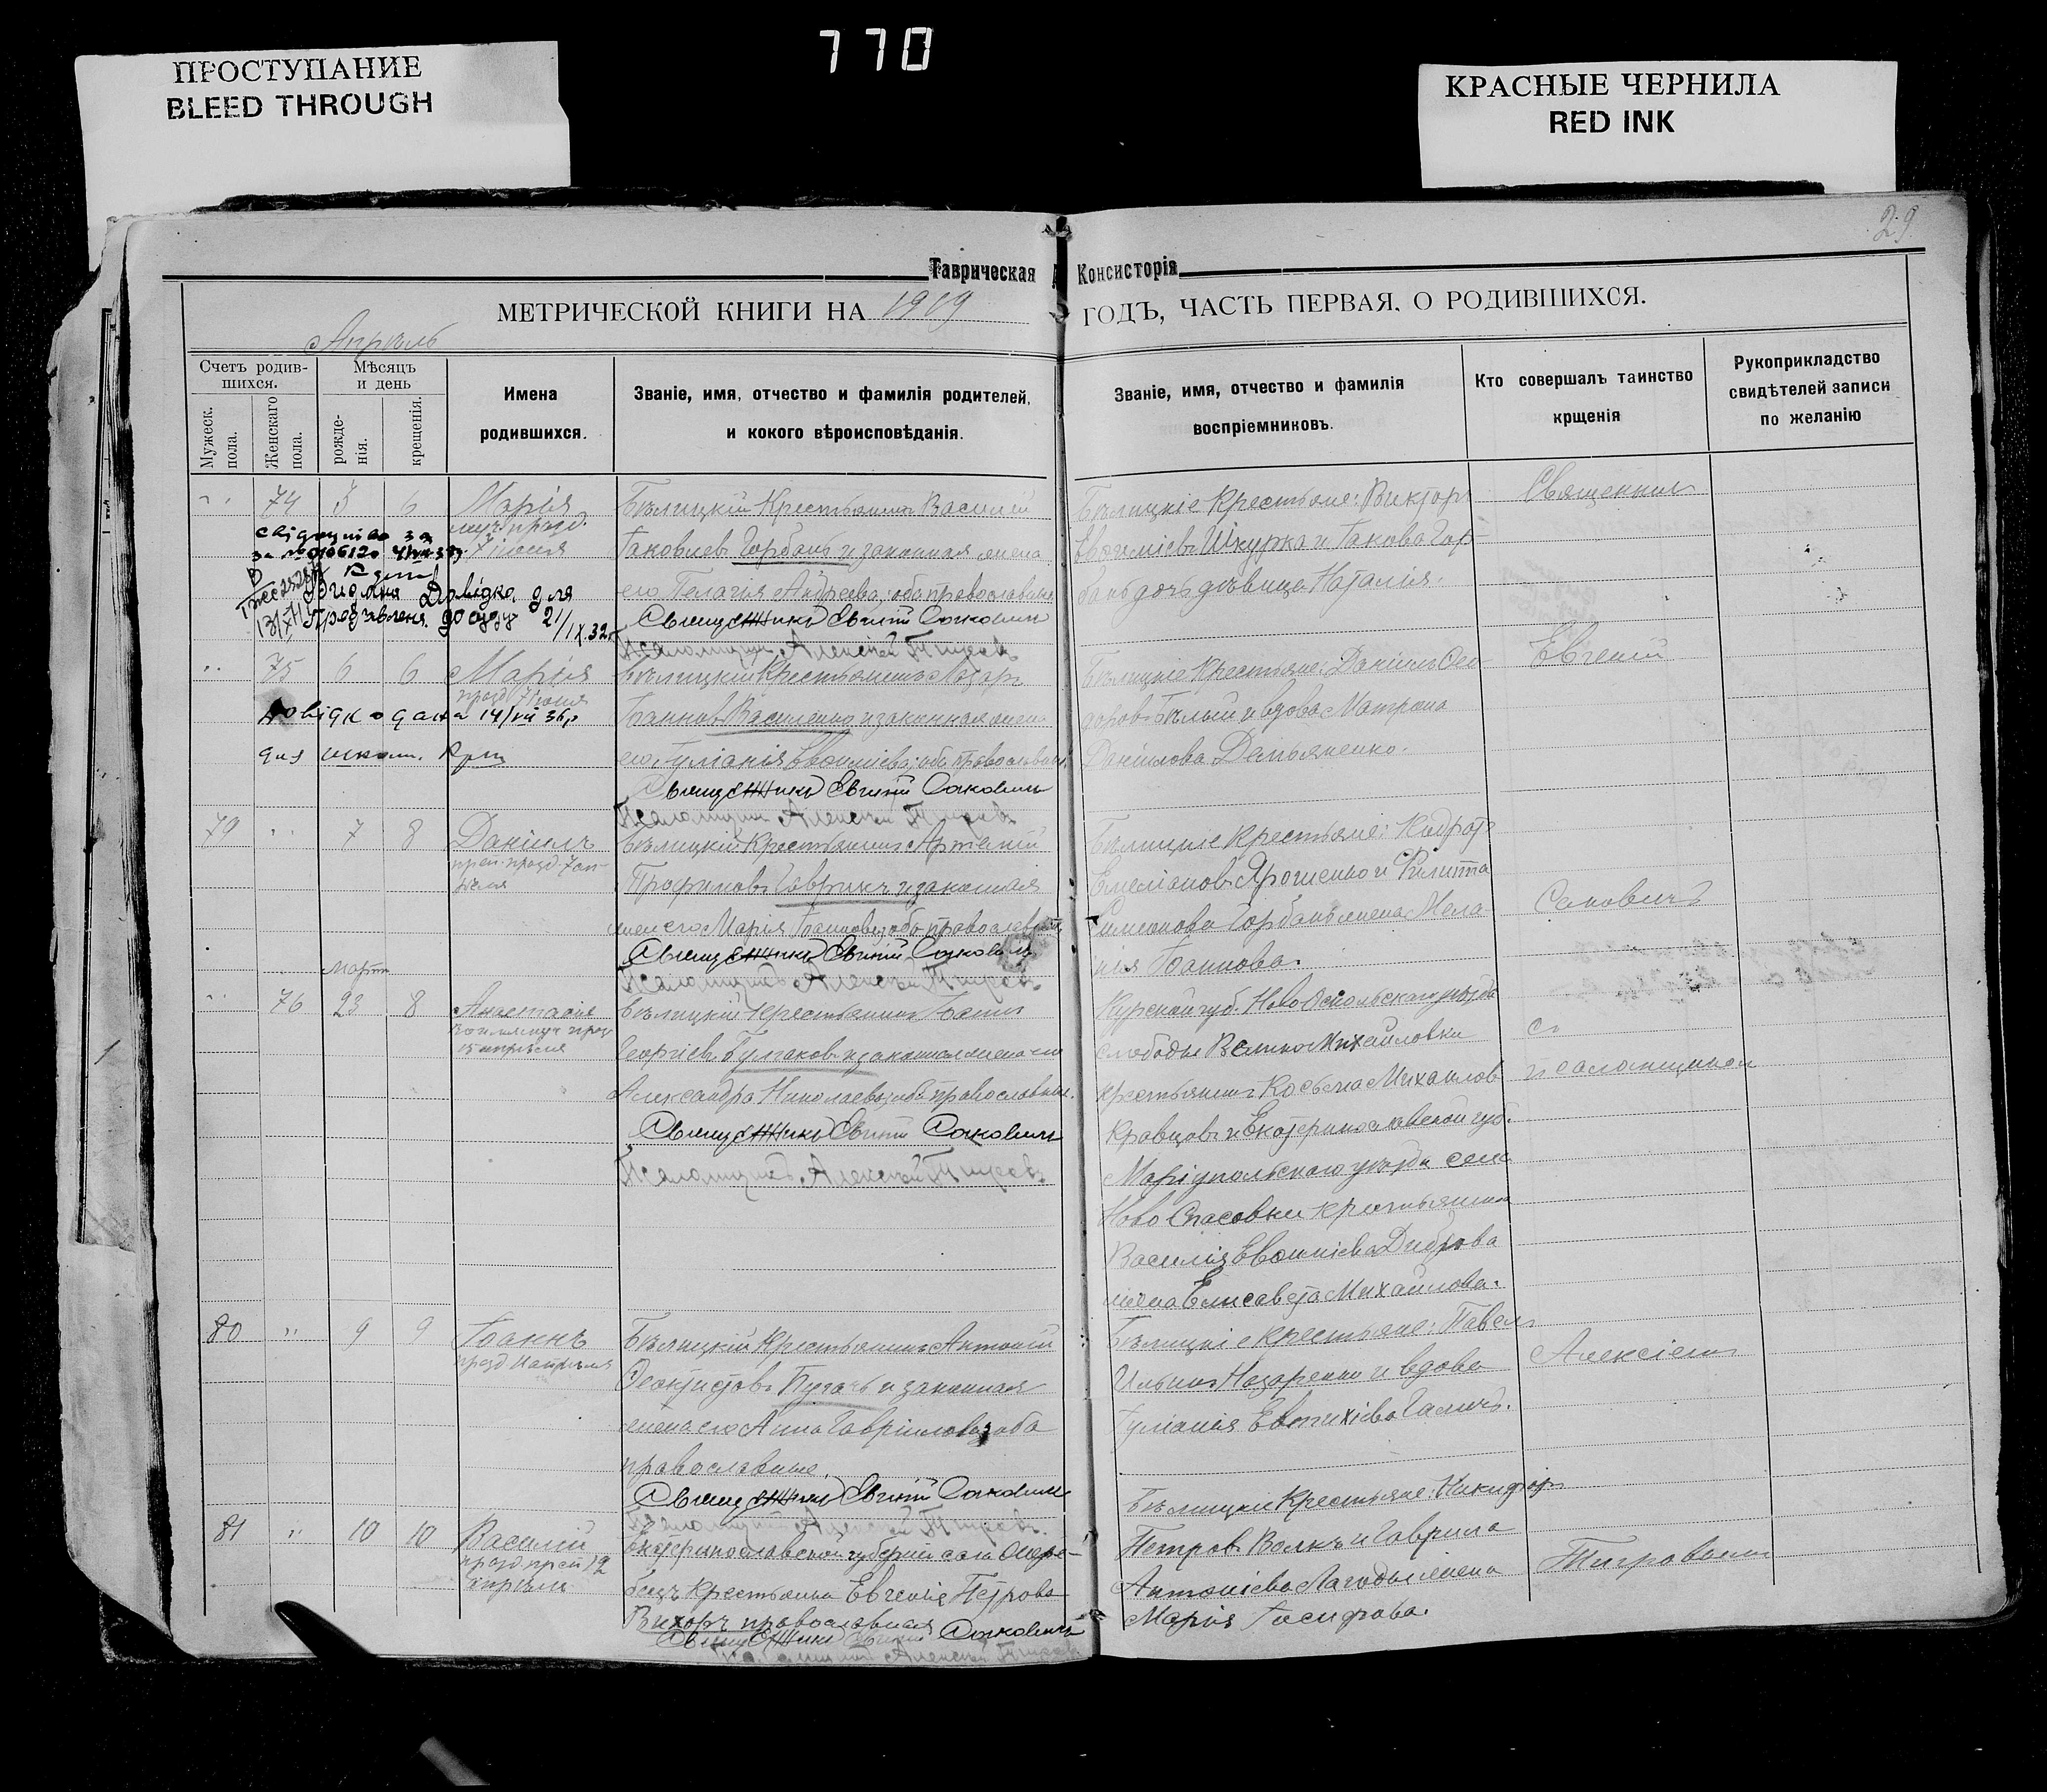 770
ПРОСТУПАНИЕ
BLEED THROUGH
КРАСНЫЕ ЧЕРНИЛА
RED INK
29
Таврическая Консисторія
МЕТРИЧЕСКОЙ КНИГИ НА 1919 ГОДЪ, ЧАСТЬ ПЕРВАЯ, О РОДИВШИХСЯ.
Апрѣль
Счетъ родив-
шихся.
Мужеск.
пола.
Женскаго
пола.
Мѣсяцъ
и день
рожде-
нія.
крещенія.
Имена
родившихся.
Званіе, имя, отчество и фамилія родителей,
и кокого вѣроисповѣданія.
Званіе, имя, отчество и фамилія
воспріемниковъ.
Кто совершалъ таинство
крщенія
Рукоприкладство
свидѣтелей записи
по желанію
74 5 6 Марія
Бѣлицкій Крестьянинъ Василій
Іаковлевъ Горбань и законная жена
его Пелагія Андреева; оба православные
Священникъ Евгеній Саковичъ
Псаломщикъ Алексій Тигровъ
Бѣлицкіе Крестьяне: Викторъ
Евѳиміевъ Шкурка и Іакова Гор-
бань дочь дѣвица Наталія.
Священникъ
75 6 6 Марія
празд. 7 іюня
Довідка дана 14/VII 36 р
для школи.
Бѣлицкій Крестьянинъ Лазарь
Іоанновъ Василенко и законная жена
его Іуліанія Евѳиміева; оба православные
Священникъ Евгеній Саковичъ
Псаломщикъ Алексій Тигровъ
Бѣлицкіе Крестьяне: Даніилъ Ѳео-
доровъ Бѣлый и вдова Матрона
Даніилова Демьяненко.
Евгеній
79 7 8 Даніилъ
Бѣлицкій Крестьянинъ Артемій
Трофимовъ Гавришъ и законная
жена его Марія Іоаннова; оба православные
Священникъ Евгеній Саковичъ
Псаломщикъ Алексій Тигровъ
Бѣлицкіе Крестьяне: Кодратъ
Емеліановъ Ярошенко и Филиппа
Симеонова Горбань жена Мела-
нія Іоаннова.
Саковичъ
мартъ
76 23 8 Анастасія
15 апрѣля
Бѣлицкій Крестьянинъ Іоаннъ
Георгіевъ Булгаковъ и законная жена его
Александра Николаева; оба православные.
Священникъ Евгеній Саковичъ
Псаломщикъ Алексій Тигровъ
Курской губ. Ново Оскольскаго уѣзда
слободы Велико Михайловки
крестьянинъ Косьма Михаиловъ
Кравцовъ и Екатеринославской губ.
Маріупольскаго уѣзда села
Ново Спасовки крестьянина
Василія Евѳиміева Диброва
жена Елисавета Михаилова.
съ
псаломщикомъ
80 9 9 Іоаннъ
Бѣлицкій Крестьянинъ Антоній
Ѳеоктистовъ Пугачъ и законная
жена его Анна Гавріилова; оба
православные.
Священникъ Евгеній Саковичъ
Псаломщикъ Алексій Тигровъ
Бѣлицкіе Крестьяне: Павелъ
Ильинъ Назаренко и вдова
Іуліанія Евтихіева Галичъ.
Алексіемъ
81 10 10 Василій
апрѣля
Екатеринославской губерніи села
Крестьянка Евгенія Петрова
Вихоръ православная
Священникъ Евгеній Саковичъ
Алексій Тигровъ
Бѣлицкіе Крестьяне: Никифоръ
Петровъ Волкъ и Гавріила
Антоніева Лагоды жена
Марія Іосифова.
Тигровымъ